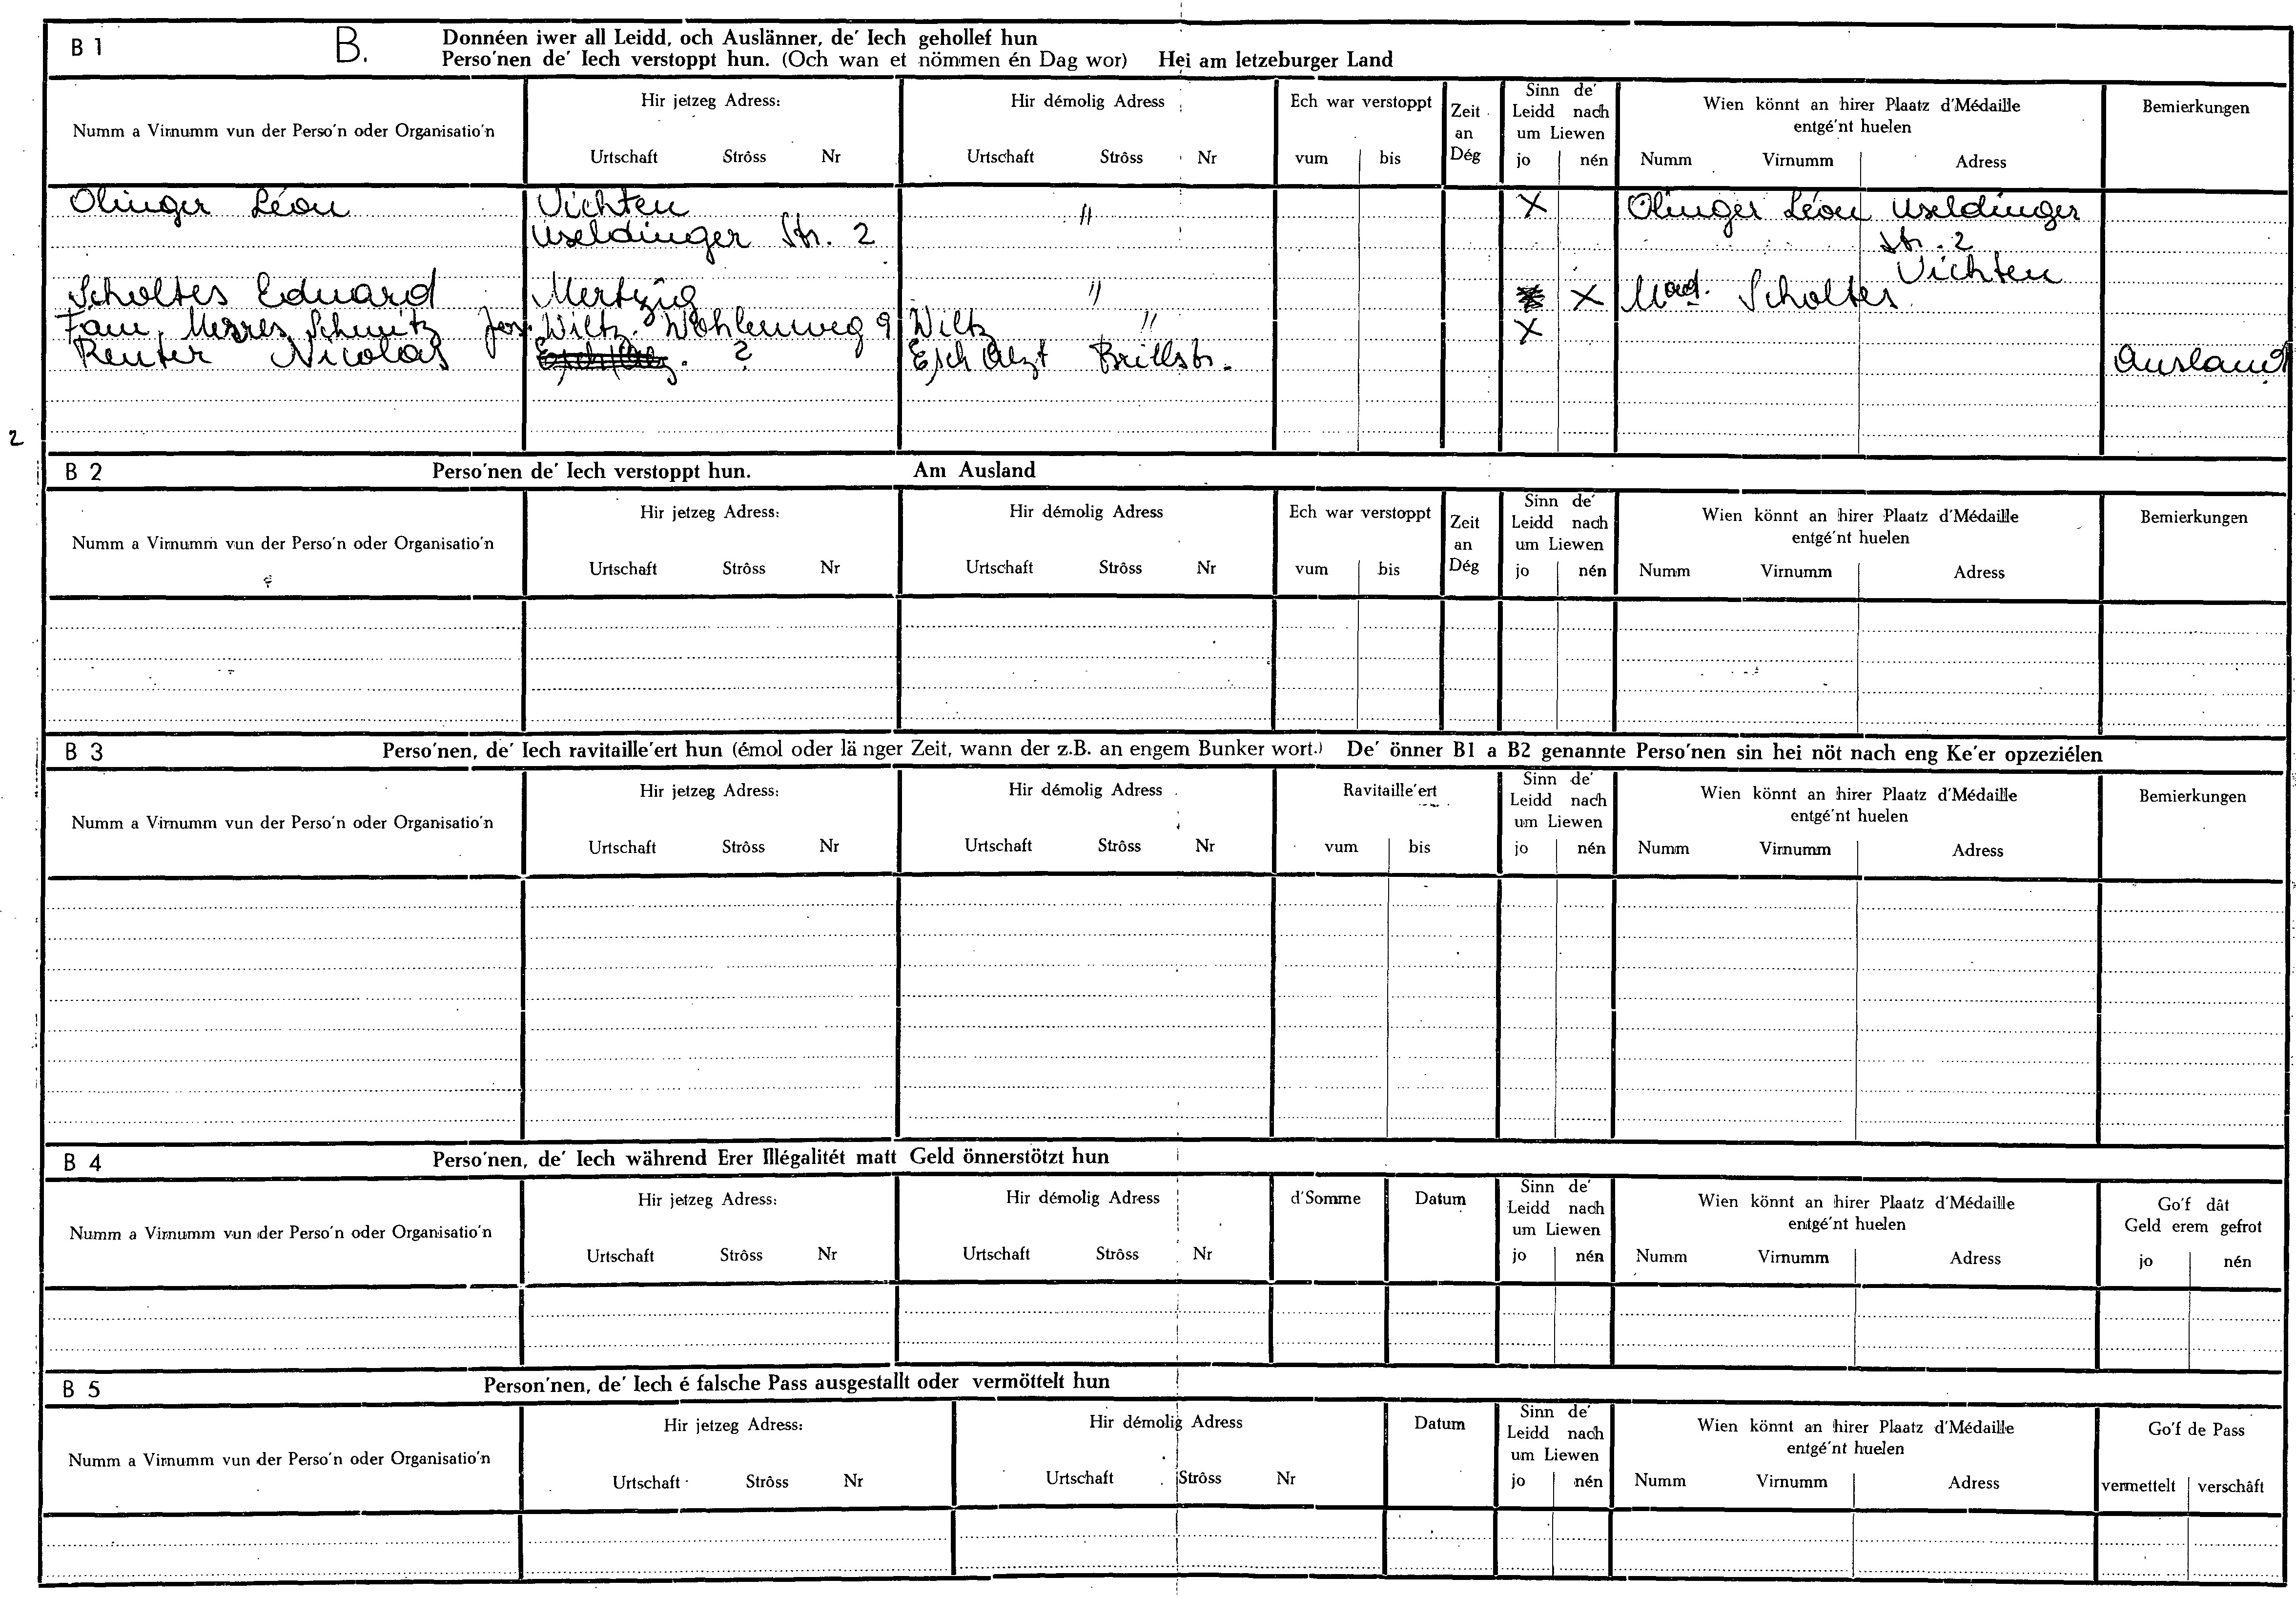 B 1
B.
Donnéen iwer all Leidd, och Auslänner, de' Iech gehollef hun
Perso'nen de' Iech verstoppt hun. (Och wan et nömmen én Dag wor) Hei am letzeburger Land
Numm a Virnumm vun der Perso'n oder Organisatio'n
Hir jetzeg Adress:
Urtschaft Strôss Nr
Hir démolig Adress
Urtschaft Strôss Nr
Ech war verstoppt
vum bis
Zeit
an
Dég
Sinn de'
Leidd nach
um Liewen
jo nén
Wien könnt an hirer Plaatz d'Médaille
entgé'nt huelen
Numm Virnumm Adress
Bemierkungen
Olinger Léon Vichten " X Olinger Léon Useldinger
Useldinger Str. 2 Str. 2
Vichten
Scholtes Eduard Mertzig " X Mad. Scholtes
Fam. Merres Schmitz Jos. Wiltz. Wohlenweg 9 Wiltz " X
Reuter Nicolas ? Esch Alzt Brillstr. Ausland
2
B 2
Perso'nen de' Iech verstoppt hun. Am Ausland
Numm a Virnumm vun der Perso'n oder Organisatio'n
Hir jetzeg Adress:
Urtschaft Strôss Nr
Hir démolig Adress
Urtschaft Strôss Nr
Ech war verstoppt
vum bis
Zeit
an
Dég
Sinn de'
Leidd nach
um Liewen
jo nén
Wien könnt an hirer Plaatz d'Médaille
entgé'nt huelen
Numm Virnumm Adress
Bemierkungen
B 3
Perso'nen, de' Iech ravitaille'ert hun (émol oder länger Zeit, wann der z.B. an engem Bunker wort.) De' önner B1 a B2 genannte Perso'nen sin hei nöt nach eng Ke'er opzeziélen
Numm a Virnumm vun der Perso'n oder Organisatio'n
Hir jetzeg Adress:
Urtschaft Strôss Nr
Hir démolig Adress
Urtschaft Strôss Nr
Ravitaille'ert
vum bis
Sinn de'
Leidd nach
um Liewen
jo nén
Wien könnt an hirer Plaatz d'Médaille
entgé'nt huelen
Numm Virnumm Adress
Bemierkungen
B 4
Perso'nen, de' Iech während Erer Illégalitét matt Geld önnerstötzt hun
Numm a Virnumm vun der Perso'n oder Organisatio'n
Hir jetzeg Adress:
Urtschaft Strôss Nr
Hir démolig Adress
Urtschaft Strôss Nr
d'Somme
Datum
Sinn de'
Leidd nach
um Liewen
jo nén
Wien könnt an hirer Plaatz d'Médaille
entgé'nt huelen
Numm Virnumm Adress
Go'f dât
Geld erem gefrot
jo nén
B 5
Person'nen, de' Iech é falsche Pass ausgestallt oder vermöttelt hun
Numm a Virnumm vun der Perso'n oder Organisatio'n
Hir jetzeg Adress:
Urtschaft Strôss Nr
Hir démolig Adress
Urtschaft Strôss Nr
Datum
Sinn de'
Leidd nach
um Liewen
jo nén
Wien könnt an hirer Plaatz d'Médaille
entgé'nt huelen
Numm Virnumm Adress
Go'f de Pass
vermettelt verschâft